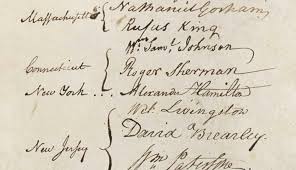 Massachusetts { Nathaniel Gorham
Rufus King
Connecticut { Wm. Saml. Johnson
Roger Sherman
New York . . . Alexander Hamilton
New Jersey { Wil: Livingston
David Brearley.
Wm Paterson.